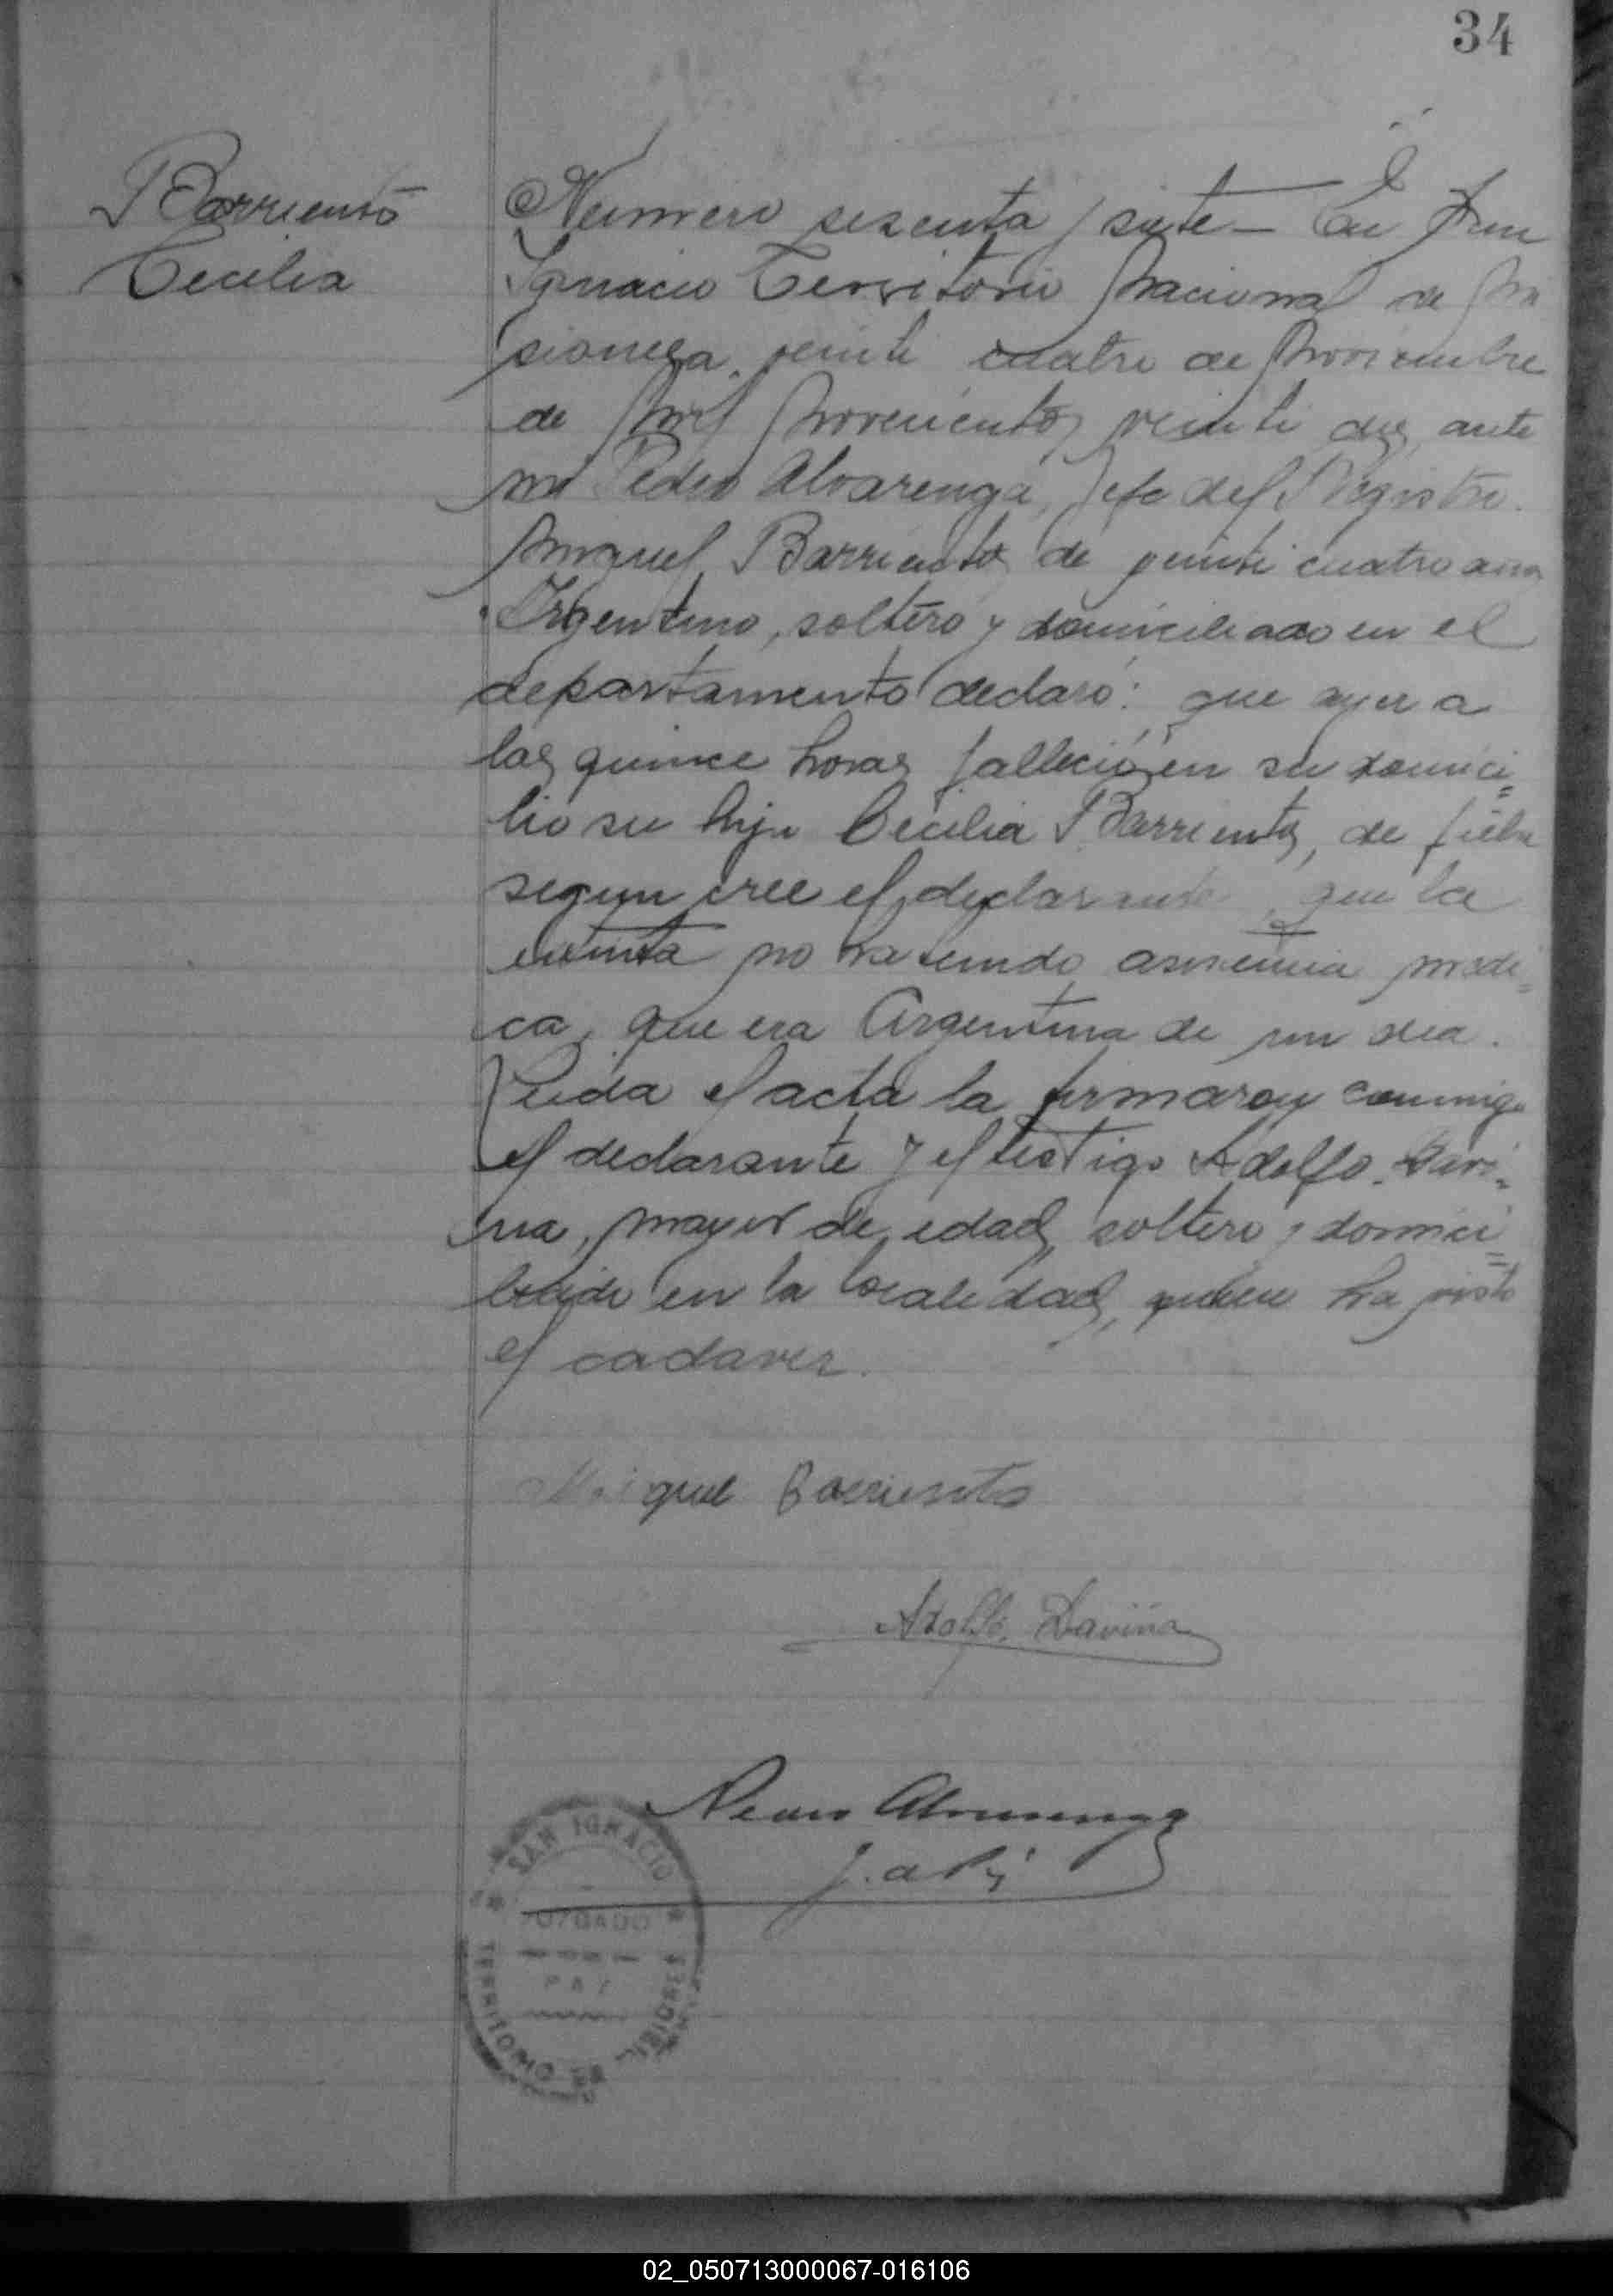 34
Barrientos
Cecilia
Numero sesenta y siete — En San
Ignacio Territorio Nacional de Mi
siones a veinti cuatro de Noviembre
de Mil Novecientos veinti dos, ante
mi Pedro Alvarenga, Jefe del Registro.
Miguel Barrientos de veinti cuatro años
Argentino, soltero y domiciliado en el
departamento declaró: que ayer a
las quince horas falleció en su domici=
lio su hija Cecilia Barrientos, de fiebre
segun cree el declarante, que la
extinta no ha tenido asistencia medi=
ca, que era Argentina de un dia.
Leida el acta la firmaron conmigo
el declarante y el testigo Adolfo Davi=
ña, mayor de edad, soltero y domici=
liado en la localidad, quien ha visto
el cadaver.
Miguel Barrientos
Adolfo Daviña
Pedro Alvarenga
SAN IGNACIO
JUZGADO
PAZ
TERRITORIO DE MISIONES
02_050713000067-016106